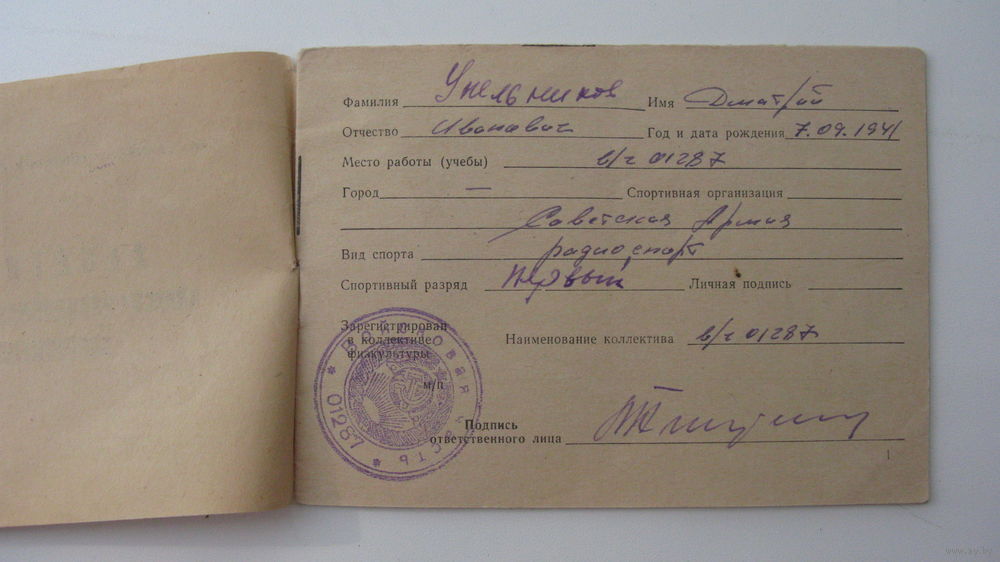 Фамилия Умельников Имя Дмитрий
Отчество Иванович Год и дата рождения 7.09.1941
Место работы (учебы) в/ч 01287
Город — Спортивная организация
Советская Армия
Вид спорта радиоспорт
Спортивный разряд Первый Личная подпись
Зарегистрирован
в коллективе
физкультуры
Наименование коллектива в/ч 01287
м/п
Подпись
ответственного лица
Войсковая часть
* 01287 *
1
www.ay.by